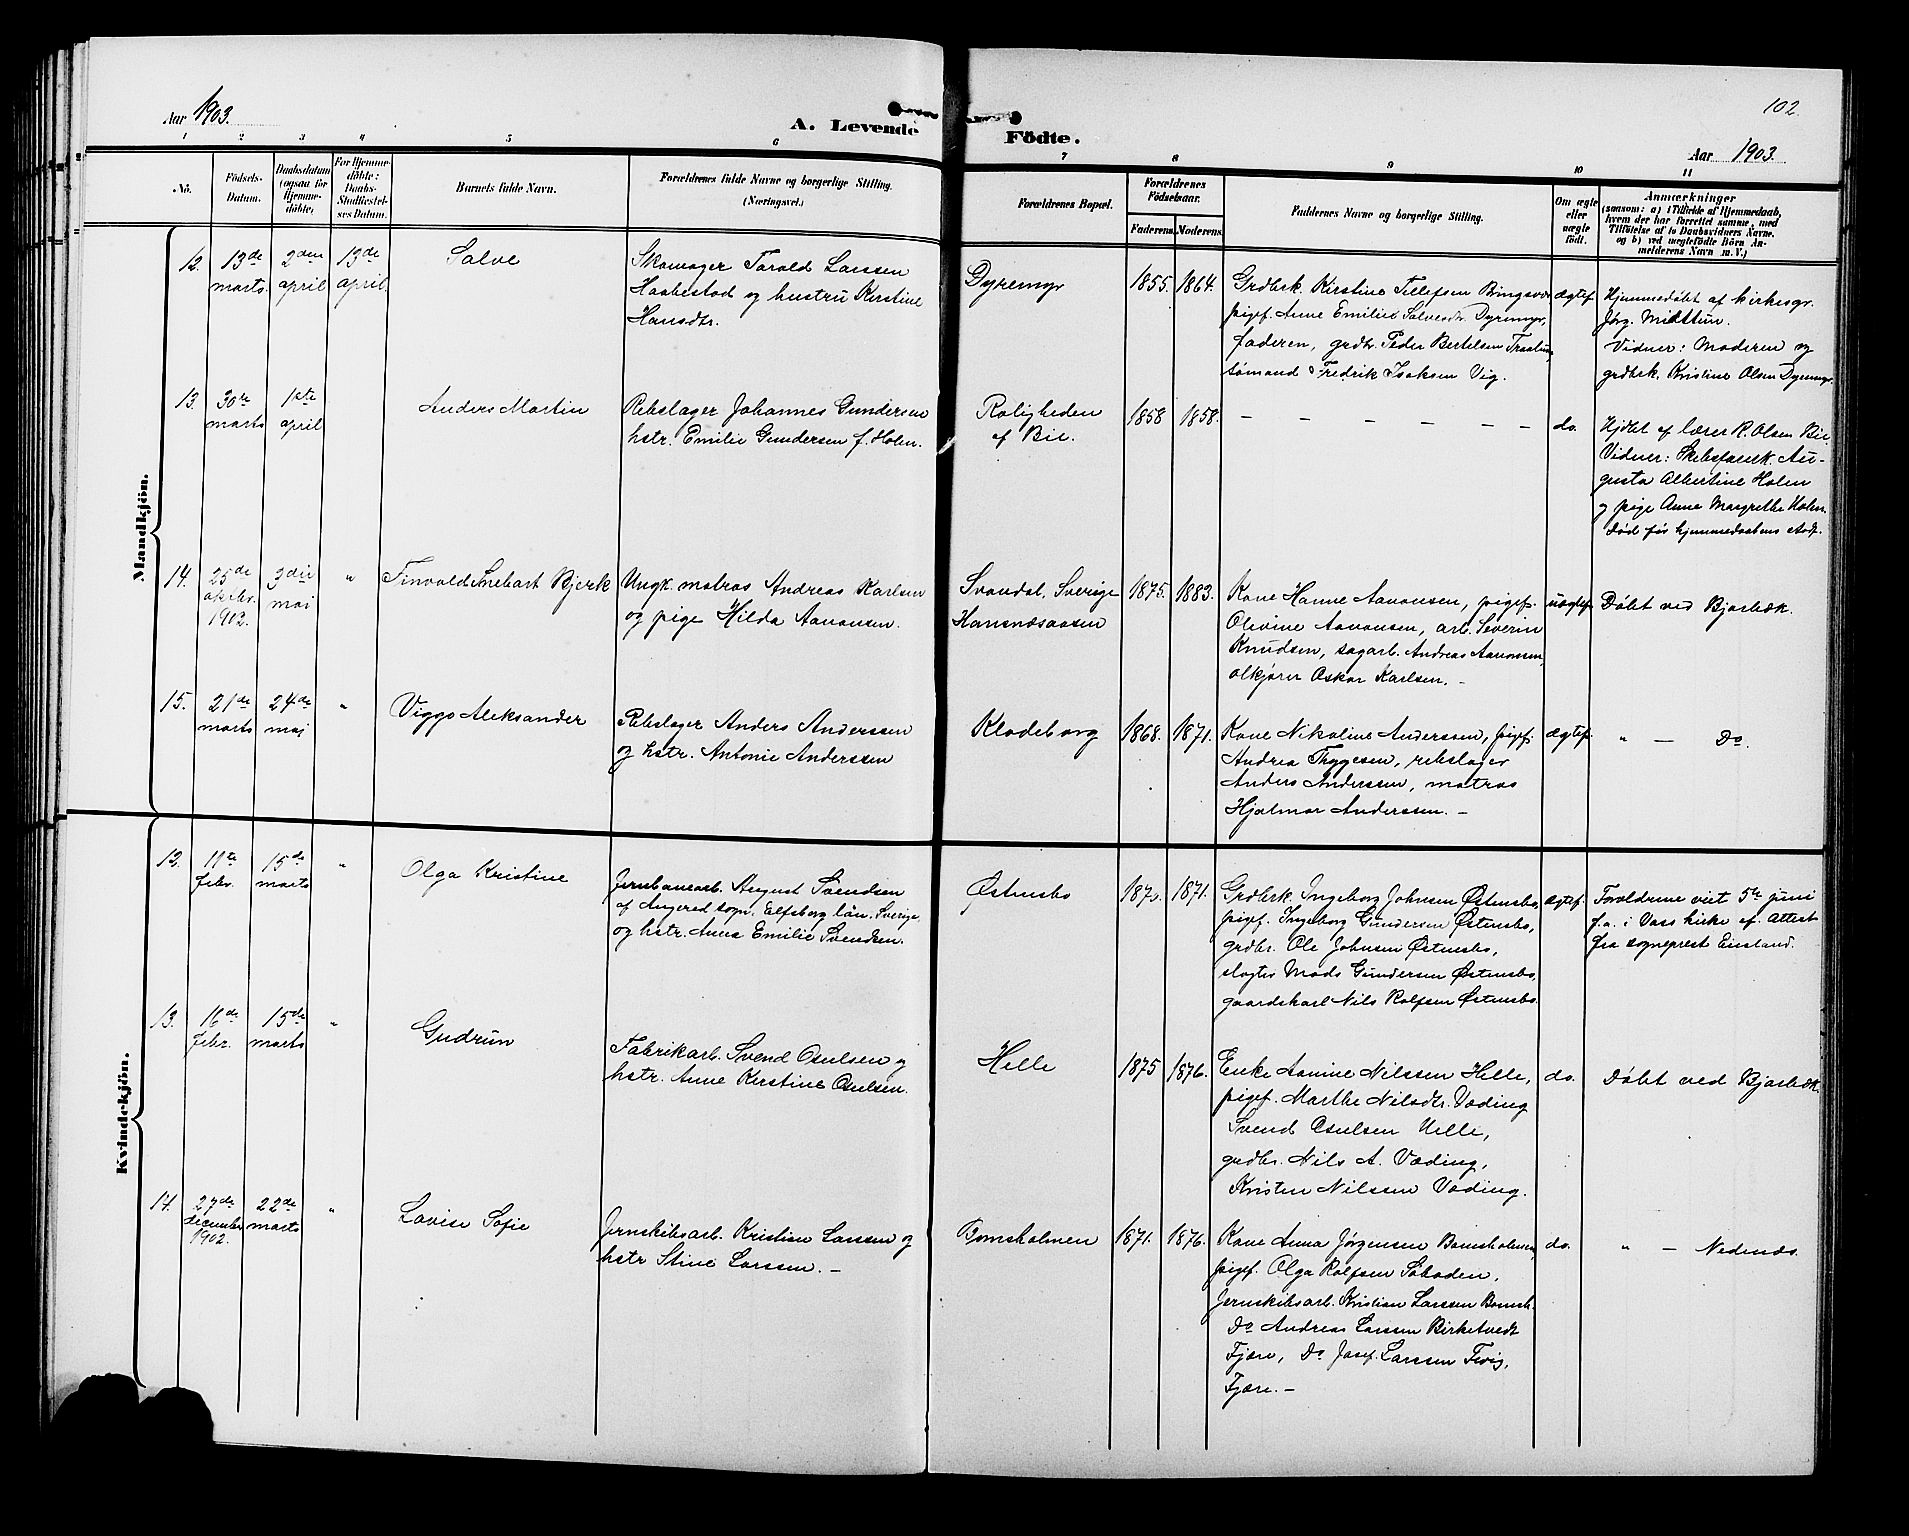 Aar 1903.
A. Levende Födte.
102.
Aar 1903.
1 2 3 4 5 6 7 8 9 10 11
No.
Födsels-
Datum.
Daabsdatum
(ogsaa for
Hjemme-
döbte)
For Hjemme-
döbte:
Daabs-
Stadfæstel-
ses Datum.
Barnets fulde Navn.
Forældrenes fulde Navne og borgerlige Stilling.
(Næringsvei.)
Forældrenes Bopæl.
Forældrenes
Födselsaar.
Faderens. Moderens.
Faddernes Navne og borgerlige Stilling.
Om ægte
eller
uægte
födt.
Anmærkninger
(saasom: a) i Tilfælde af Hjemmedaab,
hvem der har forrettet samme, med
Tilföielse af to Daabsvidners Navne,
og b) ved uægtefödte Börn An-
melderens Navn m. V.)
Mandkjön.
12.
13de
marts.
2den
april
13de
april.
Salve
Skomager Tarald Larssen
Haabestad og hustru Kirstine
Hansdtr.
Dyremyr
1855. 1864.
Grdbrk. Kirstine Tellefsen Bringsvor
pigef. Anne Emilie Salvesdtr. Dyremyr,
faderen, grdbr. Peder Bertelsen
sømand Fredrik Isaksen Vig.
ægtef.
Hjemmedøbt af kirkesgr.
Jørg. Midttun.
Vidner: Moderen og
grdbrk. Kristine Olsen Dyremyr.
13.
30te
marts
1ste
april
Anders Martin
Rebslager Johannes Gundersen
hstr. Emilie Gundersen f. Holen.
Roligheden
af Bie.
1858 1858.
– – – – – –
do.
Hjdbt af lærer R. Olsen Bie.
Vidner: Skibsførerk. Au-
gusta Albertine Holen
og pige Anne Margrethe Holen.
Død før hjemmedaabens stadf.
14.
25de
oktbr.
1902.
3die
mai
"
Tinvald Bjerk
Ungk. matros Andreas Karlsen
og pige Hilda Aanonsen.
Svandal, Sverige
Hansnæsaasen
1875. 1883.
Kone Hanne Aanonsen, pigef.
Olevine Aanonsen, arb. Severin
Knudsen, sagarb. Andreas Aanonsen,
ølkjører Oskar Karlsen. –
uægtef.
Døbt ved Bjorbæk.
15.
21de
marts
24de
mai
"
Viggo Aleksander
Rebslager Anders Anderssen
og hstr. Antonie Anderssen
Klodeborg
1868. 1871.
Kone Nikoline Anderssen, pigef.
Andrea Thygesen, rebslager
Anders Anderssen, matros
Hjalmar Anderssen. –
ægtef.
" – Do.
Kvindekjön.
12.
11te
febr.
15de
marts
"
Olga Kristine
Jernbanearb. August Svendsen
af Angered sogn, Elfsborg län, Sverige,
og hstr. Anna Emilie Svendsen.
Østensbo
1871.
Grdbrk. Ingeborg Johnsen Østensbo,
pigef. Ingeborg Gundersen Østensbo,
grdbr. Ole Johnsen Østensbo,
slagter Mads Gundersen Østensbo,
gaardskarl Nils Rolfsen Østensbo.
ægtef.
Foreldrene viet 5te juni
f.a. i Vass kirke ef. attest
fra sogneprest
13.
16de
febr.
15de
marts
"
Gudrun
Fabrikarb. Svend Osulsen og
hstr. Anne Kirstine Osulsen.
Helle
1875 1876.
Enke Aanine Nilssen Helle,
pigef. Marthe Nilsdtr. Væding
Svend Osulsen Helle,
grdbr. Nils A. Væding,
Kristen Nilssen Væding.
do.
Døbt ved Bjorbæk.
14.
27de
december
1902.
22de
marts
"
Lovise Sofie
Jernskibsarb. Kristian Larssen og
hstr Stine Larssen. –
Bomsholmen
1871. 1876.
Kone Anna Jørgensen Bomsholmen,
pigef. Olga Rolfsen Saboden,
Jernskibsarb. Kristian Larssen Bomsh.
Do Andreas Larssen Birketvedt
Fjære, Do Josef. Larssen Fevig,
Fjære. –
do.
" – Nedenæs.